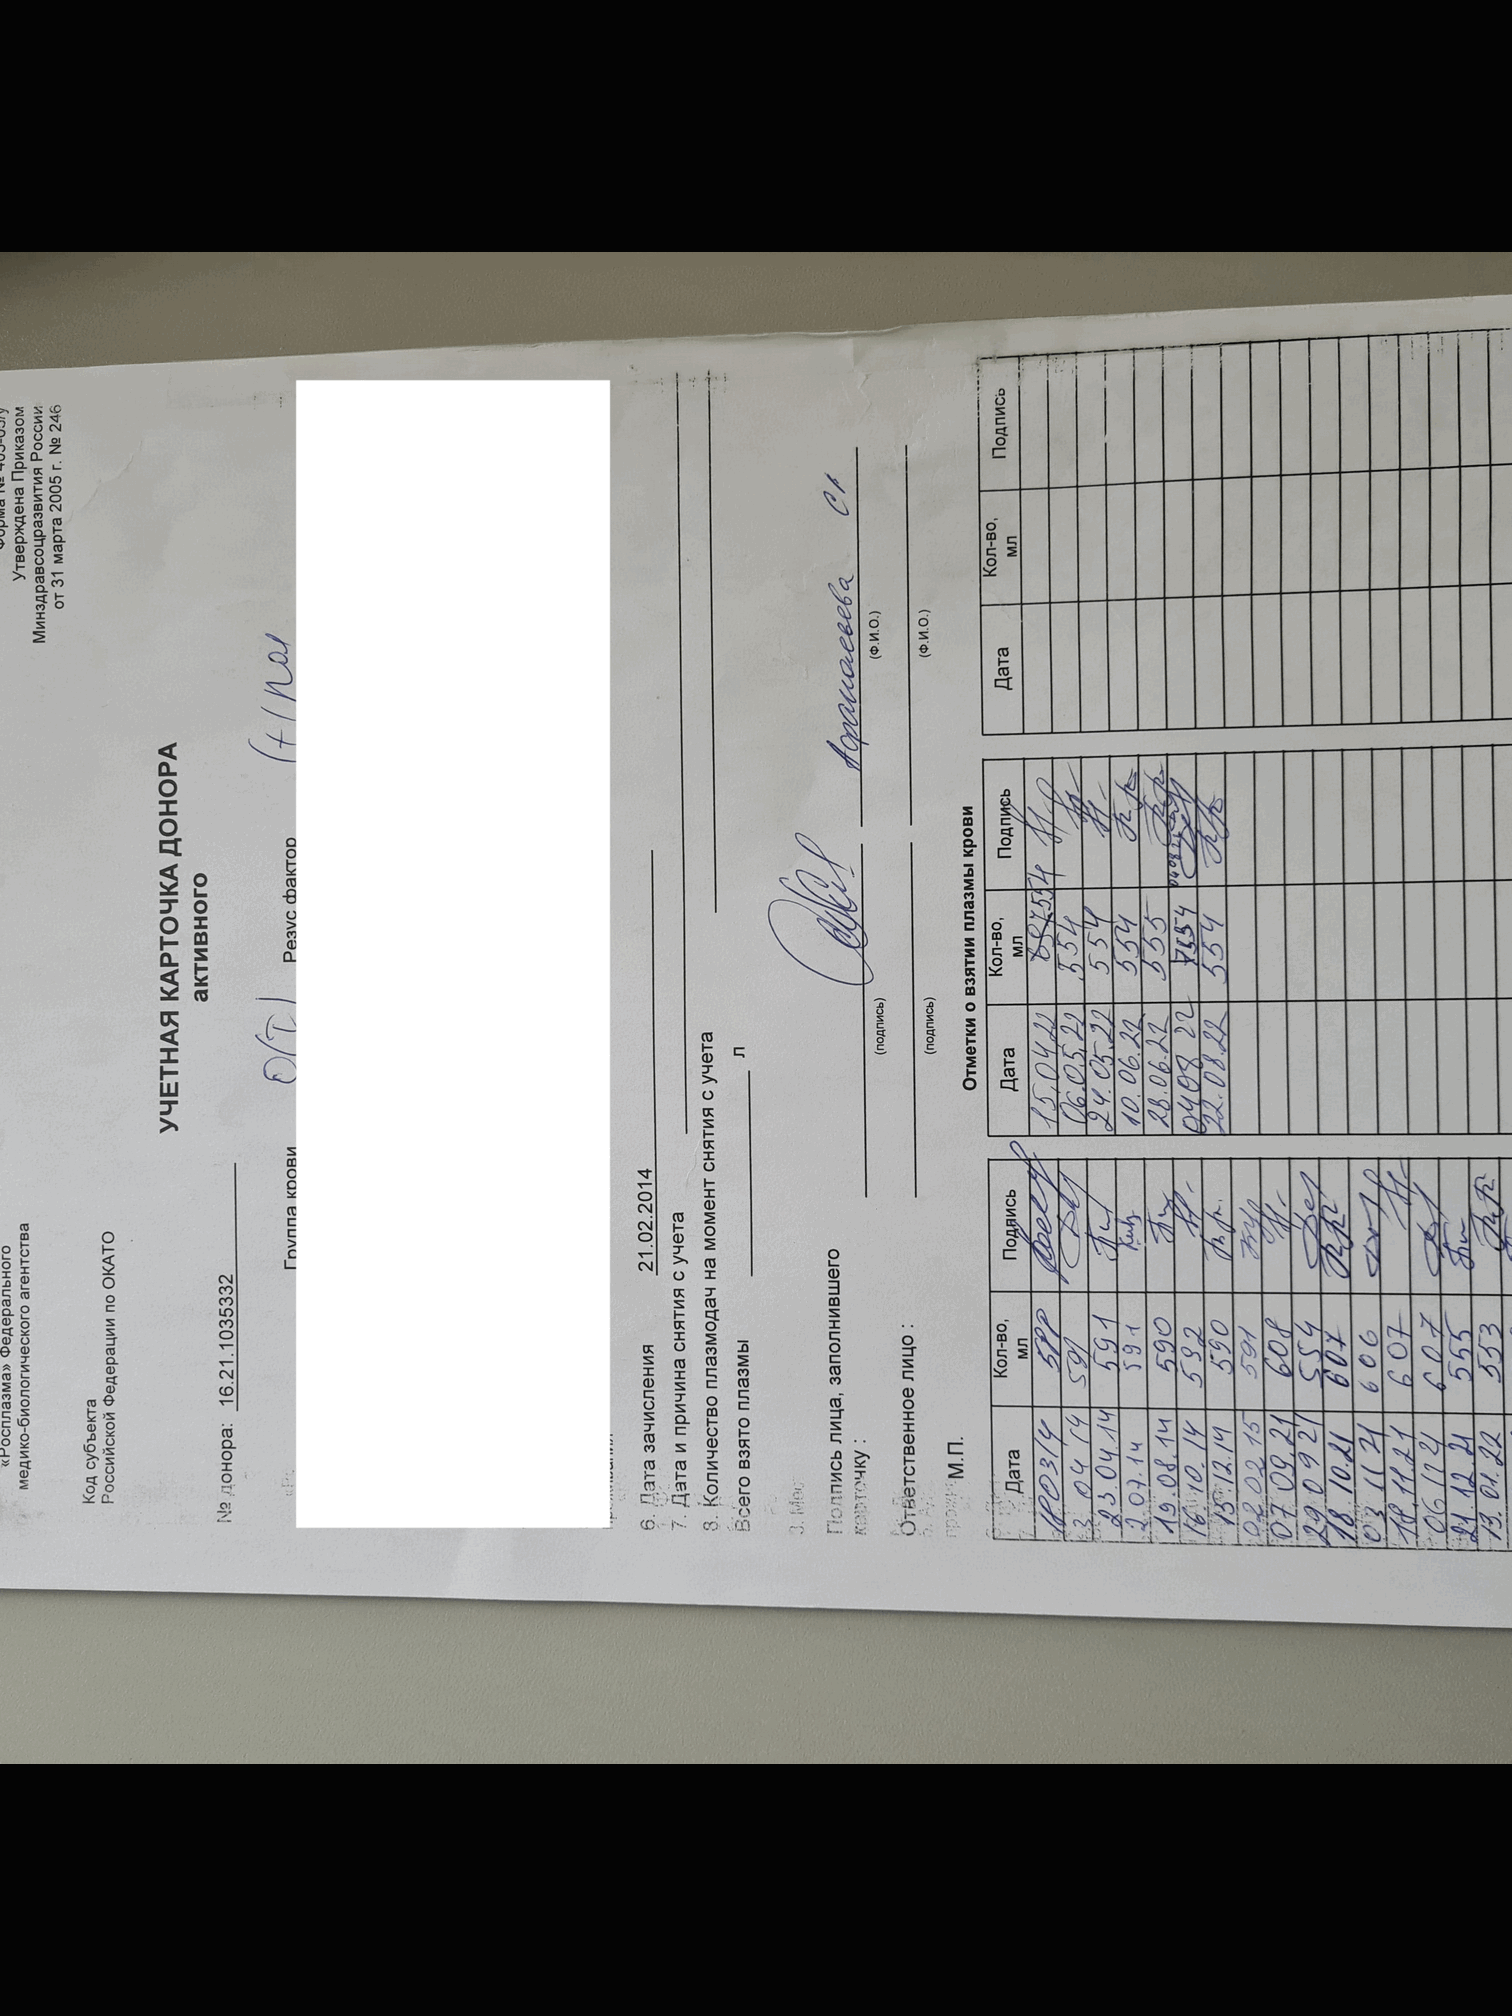 Утверждена Приказом
Минздравсоцразвития России
от 31 марта 2005 г. № 246
«Росплазма» Федерального
медико-биологического агентства
Код субъекта
Российской Федерации по ОКАТО
УЧЕТНАЯ КАРТОЧКА ДОНОРА
активного
№ донора: 16.21.1035332
Группа крови O(I) Резус фактор (+) пол
6. Дата зачисления 21.02.2014
7. Дата и причина снятия с учета
8. Количество плазмодач на момент снятия с учета
Всего взято плазмы л
Подпись лица, заполнившего
карточку :
(подпись) (Ф.И.О.)
Ответственное лицо :
(подпись) (Ф.И.О.)
М.П.
Отметки о взятии плазмы крови
Дата Кол-во, мл Подпись
591
23.04.14 591
2.07.14 591
19.08.14 590
16.10.14 592
15.12.14 590
02.02.15 591
07.09.21 608
29.09.21 554
18.10.21 607
03.11.21 606
18.11.21 607
06.12.21 607
21.12.21 555
13.01.22 553
Дата Кол-во, мл Подпись
15.04.22 554
06.05.22 554
24.05.22 554
10.06.22 554
28.06.22 555
04.08.22
22.08.22 554
Дата Кол-во, мл Подпись